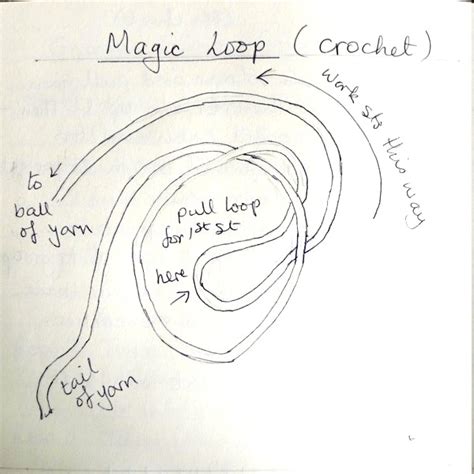 Magic Loop (crochet)
work sts this way
to
ball
of yarn
pull loop
for 1st st
here
tail
of yarn